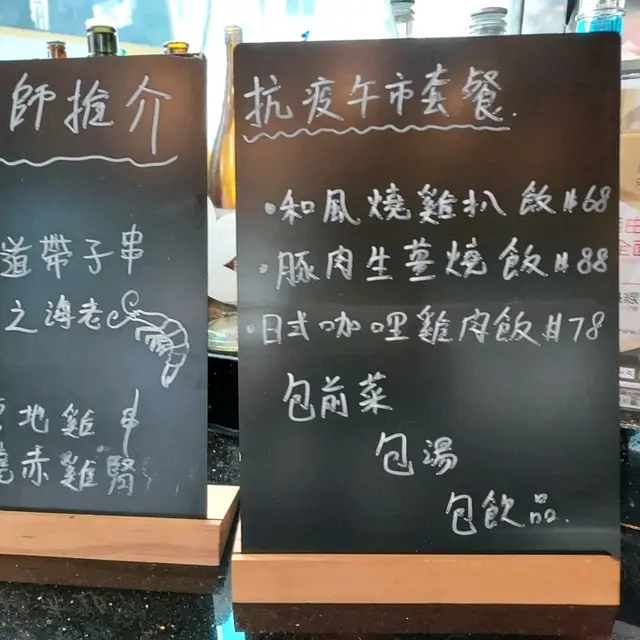 師推介
道帶子串
之海老
地雞串
赤雞腎
抗疫午市套餐
•和風燒雞扒飯$68
•豚肉生薑燒飯$88
•日式咖哩雞肉飯$78
包前菜
包湯
包飲品